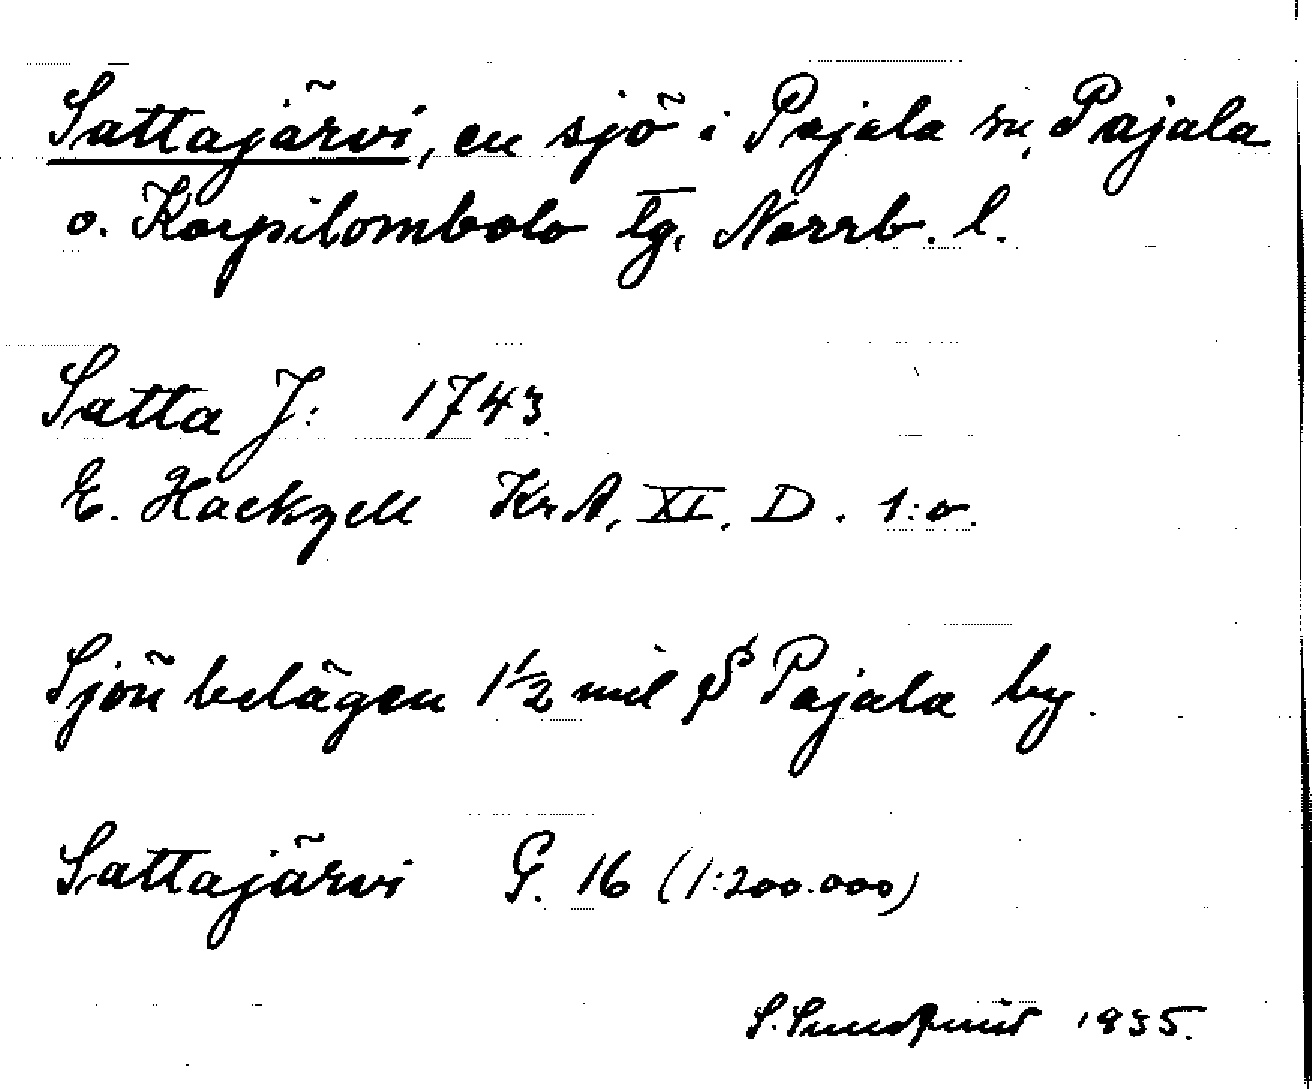 Sattajärvi, en sjö i Pajala sn, Pajala
o. Korpilombolo tg, Norrb. l.
Satta J: 1743.
E. Hackzell Kr A, XI, D. 1:o.
Sjön belägen 1 1/2 mil S Pajala by.
Sattajärvi G. 16 (1:200.000)
S. Sundqvist 1935.